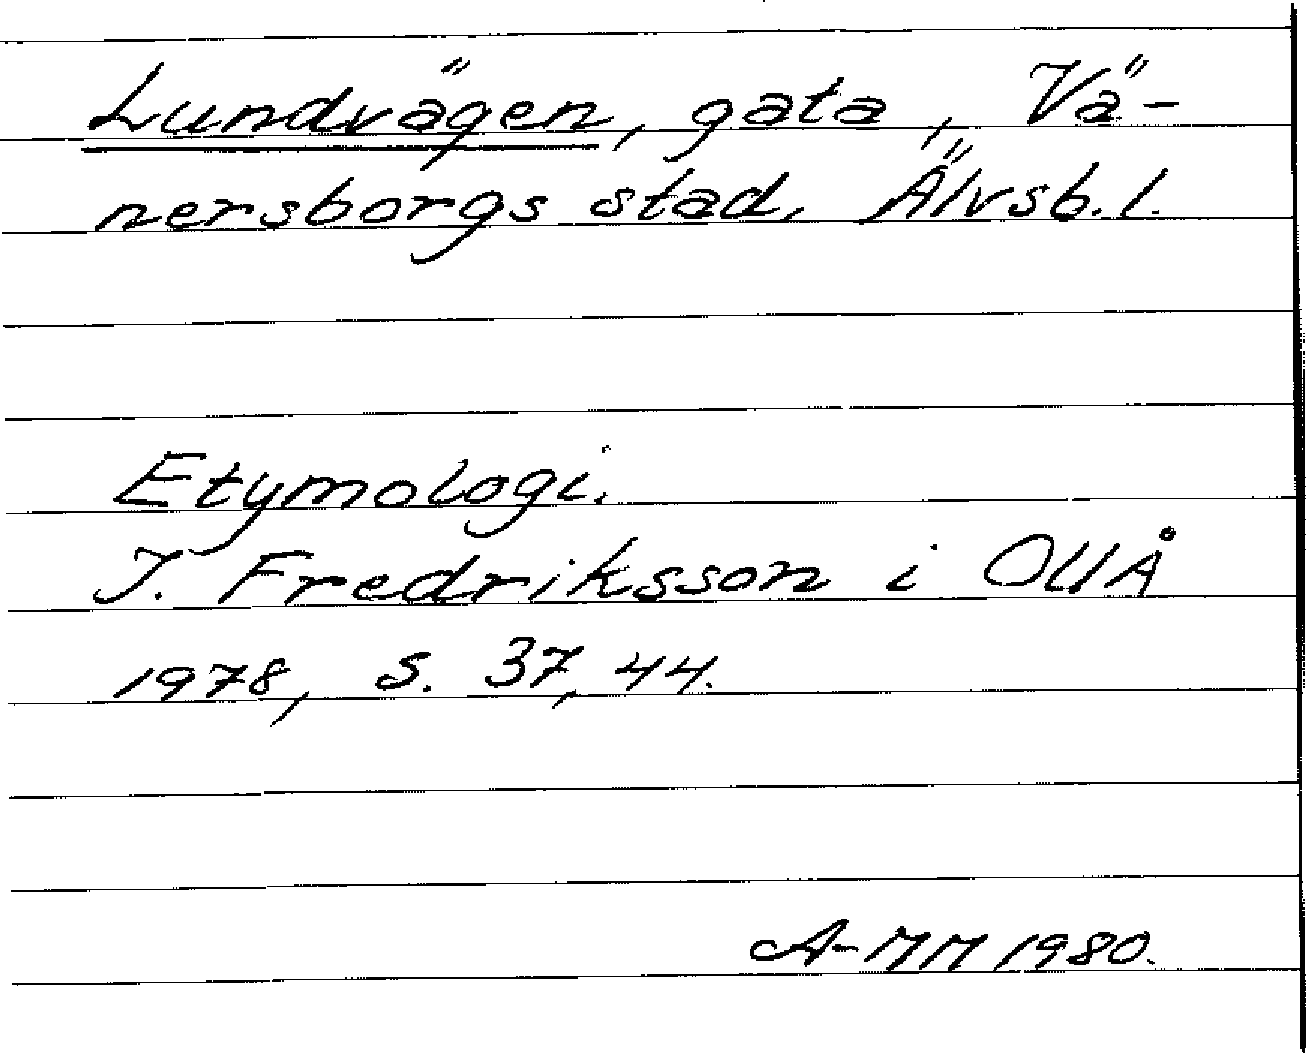 Lundvägen, gata, Vä-
nersborgs stad, Älvsb. l.
Etymologi.
I. Fredriksson i OUÅ
1978, s. 37, 44.
A-MM 1980.